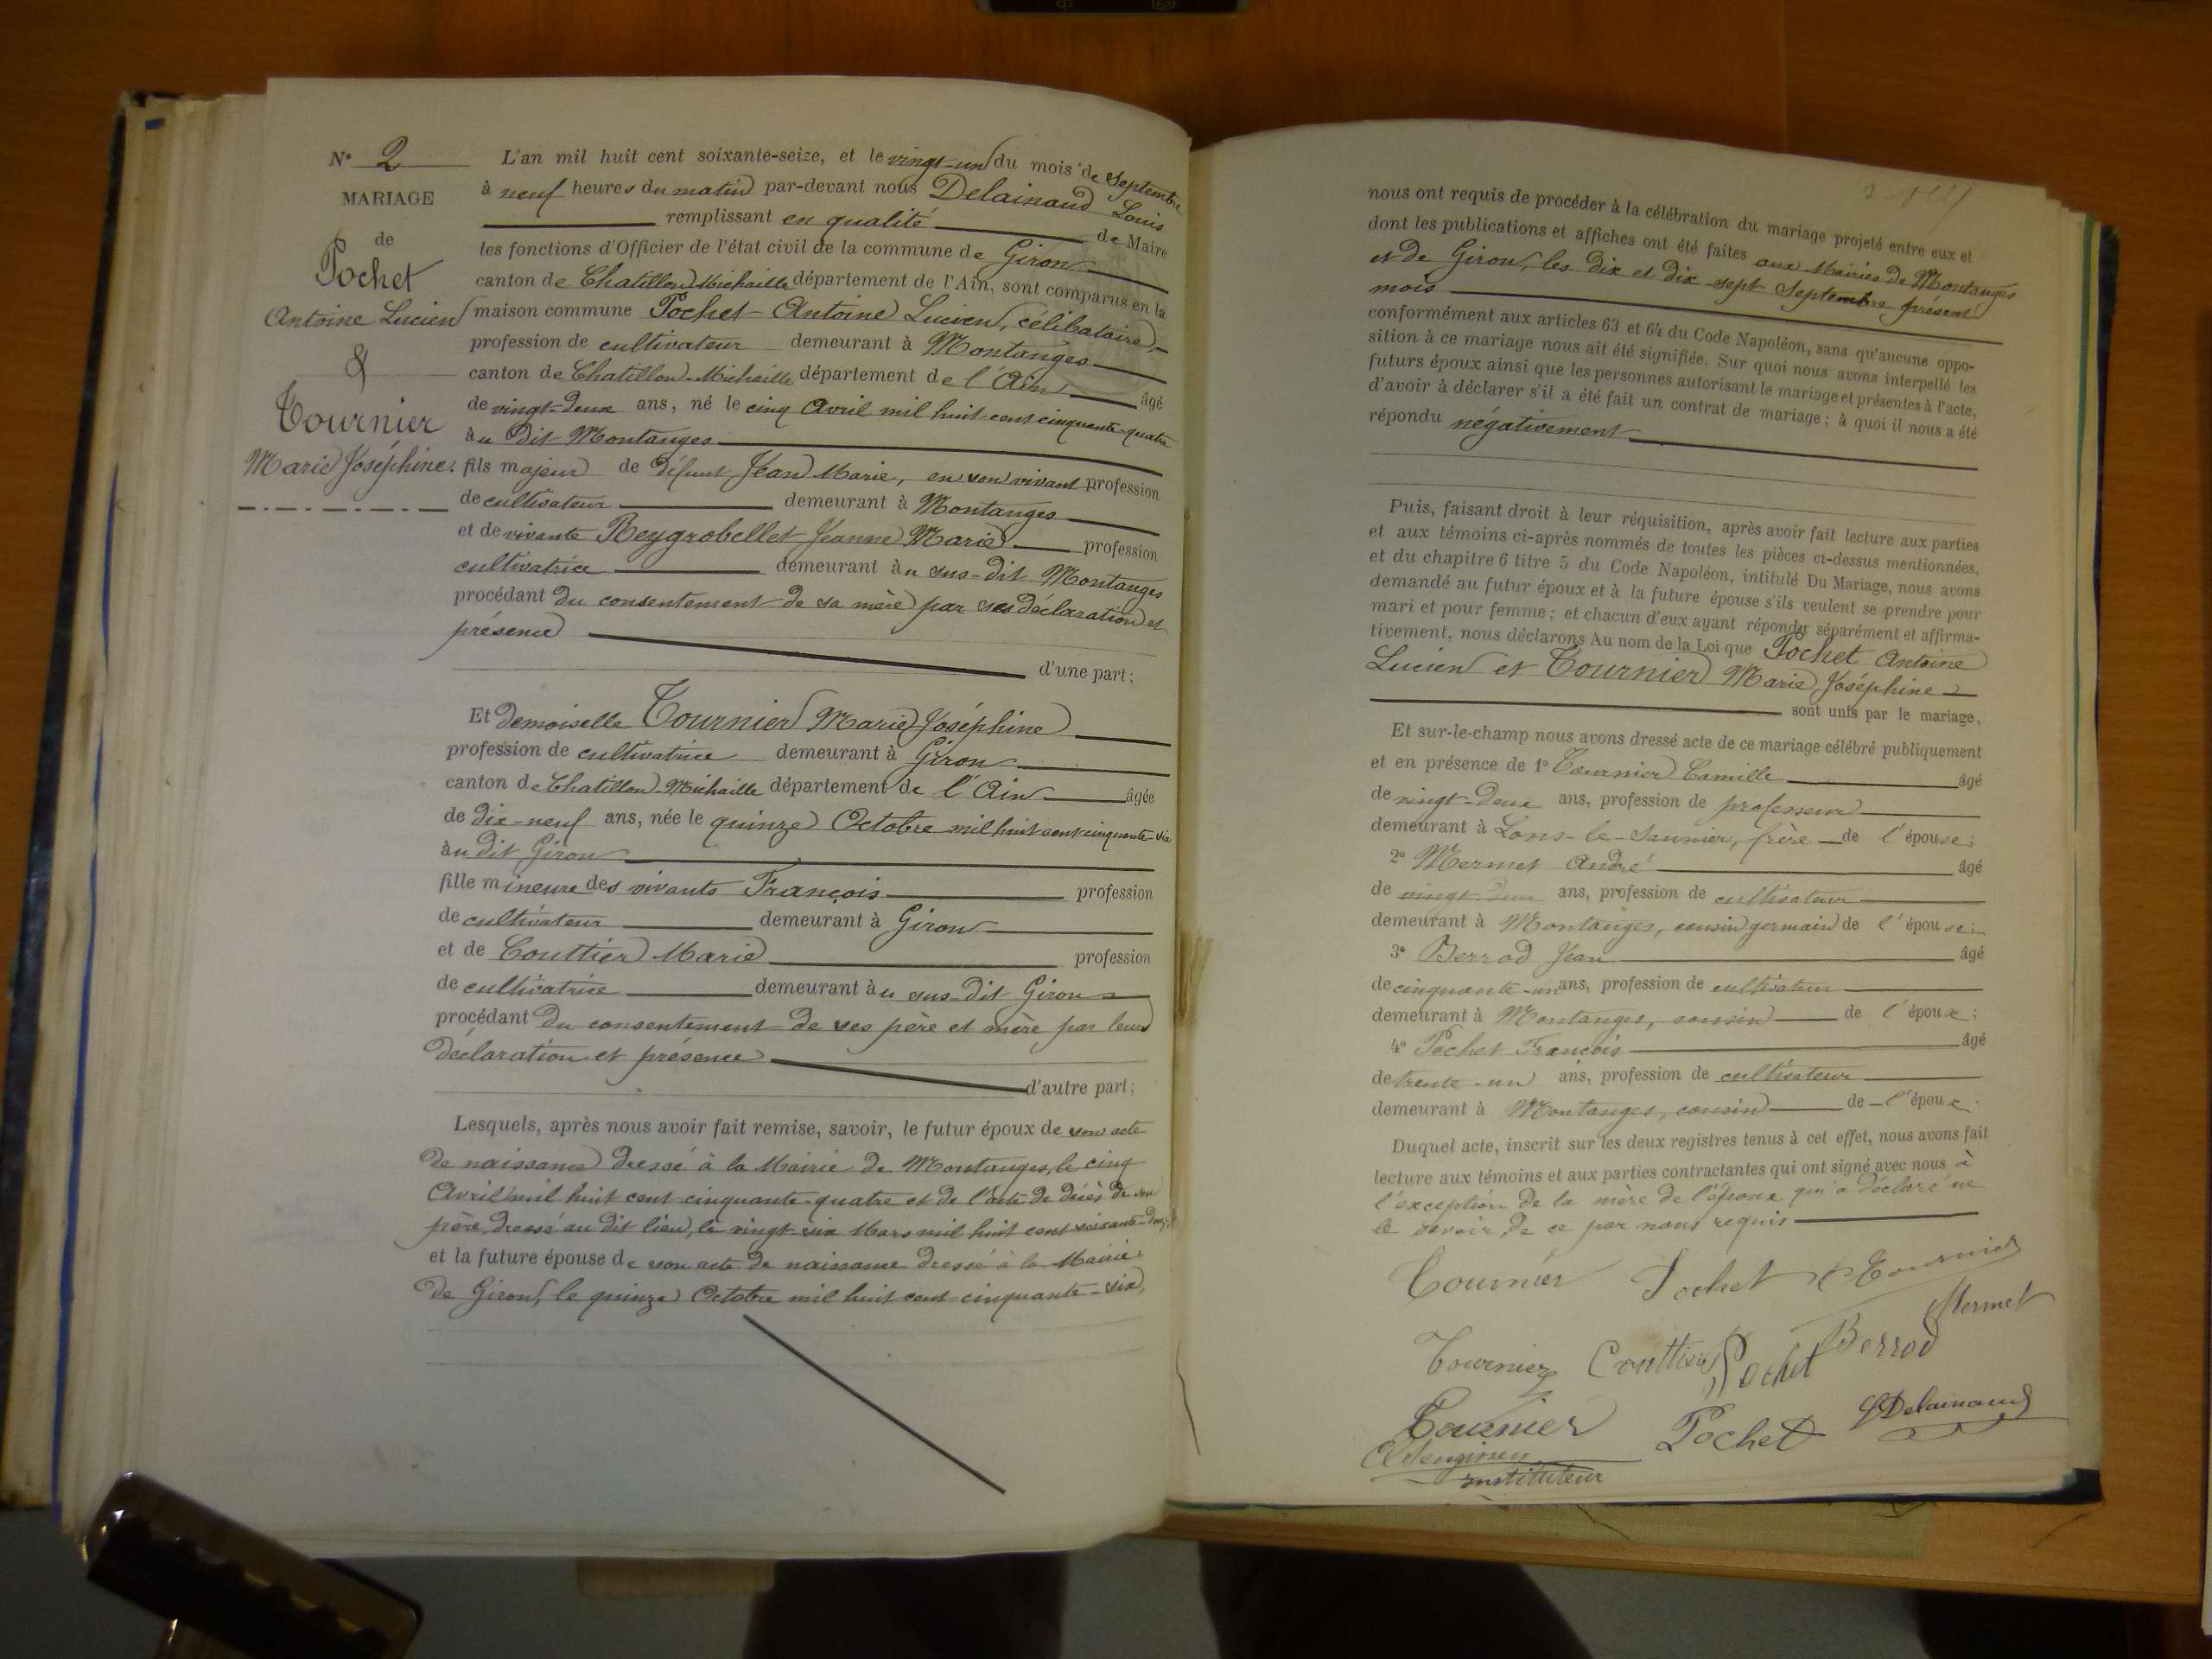 N° 2
MARIAGE
de
Pochet
Antoine Lucien
&
Tournier
Marie Joséphine.
L'an mil huit cent soixante-seize, et le vingt-un du mois de Septembre
à neuf heures du matin par-devant nous Delainaud Louis
remplissant en qualité de Maire
les fonctions d'Officier de l'état civil de la commune de Giron
canton de Chatillon Michaille département de l'Ain, sont comparus en la
maison commune Pochet Antoine Lucien, célibataire,
profession de cultivateur demeurant à Montanges
canton de Chatillon-Michaille département de l'Ain âgé
de vingt-deux ans, né le cinq Avril mil huit cent cinquante-quatre
àu dit Montanges
fils majeur de défunt Jean Marie, en son vivant profession
de cultivateur demeurant à Montanges
et de vivante Reygrobellet Jeanne Marie profession
cultivatrice demeurant àu sus-dit Montanges
procédant du consentement de sa mère par ses déclaration et
présence
d'une part;
Et demoiselle Tournier Marie Joséphine
profession de cultivatrice demeurant à Giron
canton de Chatillon Michaille département de l'Ain âgée
de dix-neuf ans, née le quinze Octobre mil huit cent cinquante-six
àu dit Giron
fille mineure des vivants François profession
de cultivateur demeurant à Giron
et de Couttier Marie profession
de cultivatrice demeurant àu sus-dit Giron
procédant du consentement de ses père et mère par leurs
déclaration et présence
d'autre part;
Lesquels, après nous avoir fait remise, savoir, le futur époux de son acte
de naissance dressé à la Mairie de Montanges, le cinq
Avril mil huit cent cinquante-quatre et de l'acte de décès de son
père, dressé au dit lieu, le vingt-six Mars mil huit cent
et la future épouse de son acte de naissance dressé à la Mairie
de Giron, le quinze Octobre mil huit cent cinquante-six,
nous ont requis de procéder à la célébration du mariage projeté entre eux et
dont les publications et affiches ont été faites aux Mairies de Montanges
et de Giron, les dix et dix-sept Septembre présent
mois
conformément aux articles 63 et 64 du Code Napoléon, sans qu'aucune oppo-
sition à ce mariage nous ait été signifiée. Sur quoi nous avons interpellé les
futurs époux ainsi que les personnes autorisant le mariage et présentes à l'acte,
d'avoir à déclarer s'il a été fait un contrat de mariage; à quoi il nous a été
répondu négativement
Puis, faisant droit à leur réquisition, après avoir fait lecture aux parties
et aux témoins ci-après nommés de toutes les pièces ci-dessus mentionnées,
et du chapitre 6 titre 5 du Code Napoléon, intitulé Du Mariage, nous avons
demandé au futur époux et à la future épouse s'ils veulent se prendre pour
mari et pour femme; et chacun d'eux ayant répondu séparément et affirma-
tivement, nous déclarons Au nom de la Loi que Pochet Antoine
Lucien et Tournier Marie Joséphine
sont unis par le mariage,
Et sur-le-champ nous avons dressé acte de ce mariage célébré publiquement
et en présence de 1° Tournier Camille âgé
de vingt-deux ans, profession de professeur
demeurant à Lons-le-Saunier, frère de l'épouse;
2° Mermet André âgé
de vingt-deux ans, profession de cultivateur
demeurant à Montanges, cousin germain de l'épouse;
3° Berrod Jean âgé
de cinquante-un ans, profession de cultivateur
demeurant à Montanges, cousin de l'époux;
4° Pochet François âgé
de trente-un ans, profession de cultivateur
demeurant à Montanges, cousin de l'époux.
Duquel acte, inscrit sur les deux registres tenus à cet effet, nous avons fait
lecture aux témoins et aux parties contractantes qui ont signé avec nous à
l'exception de la mère de l'époux qui a déclaré ne
le savoir, de ce par nous requis
Tournier Pochet C Tournier
Mermet
Tournier Couttier Pochet Berrod
Tournier Pochet L Delainaud
instituteur